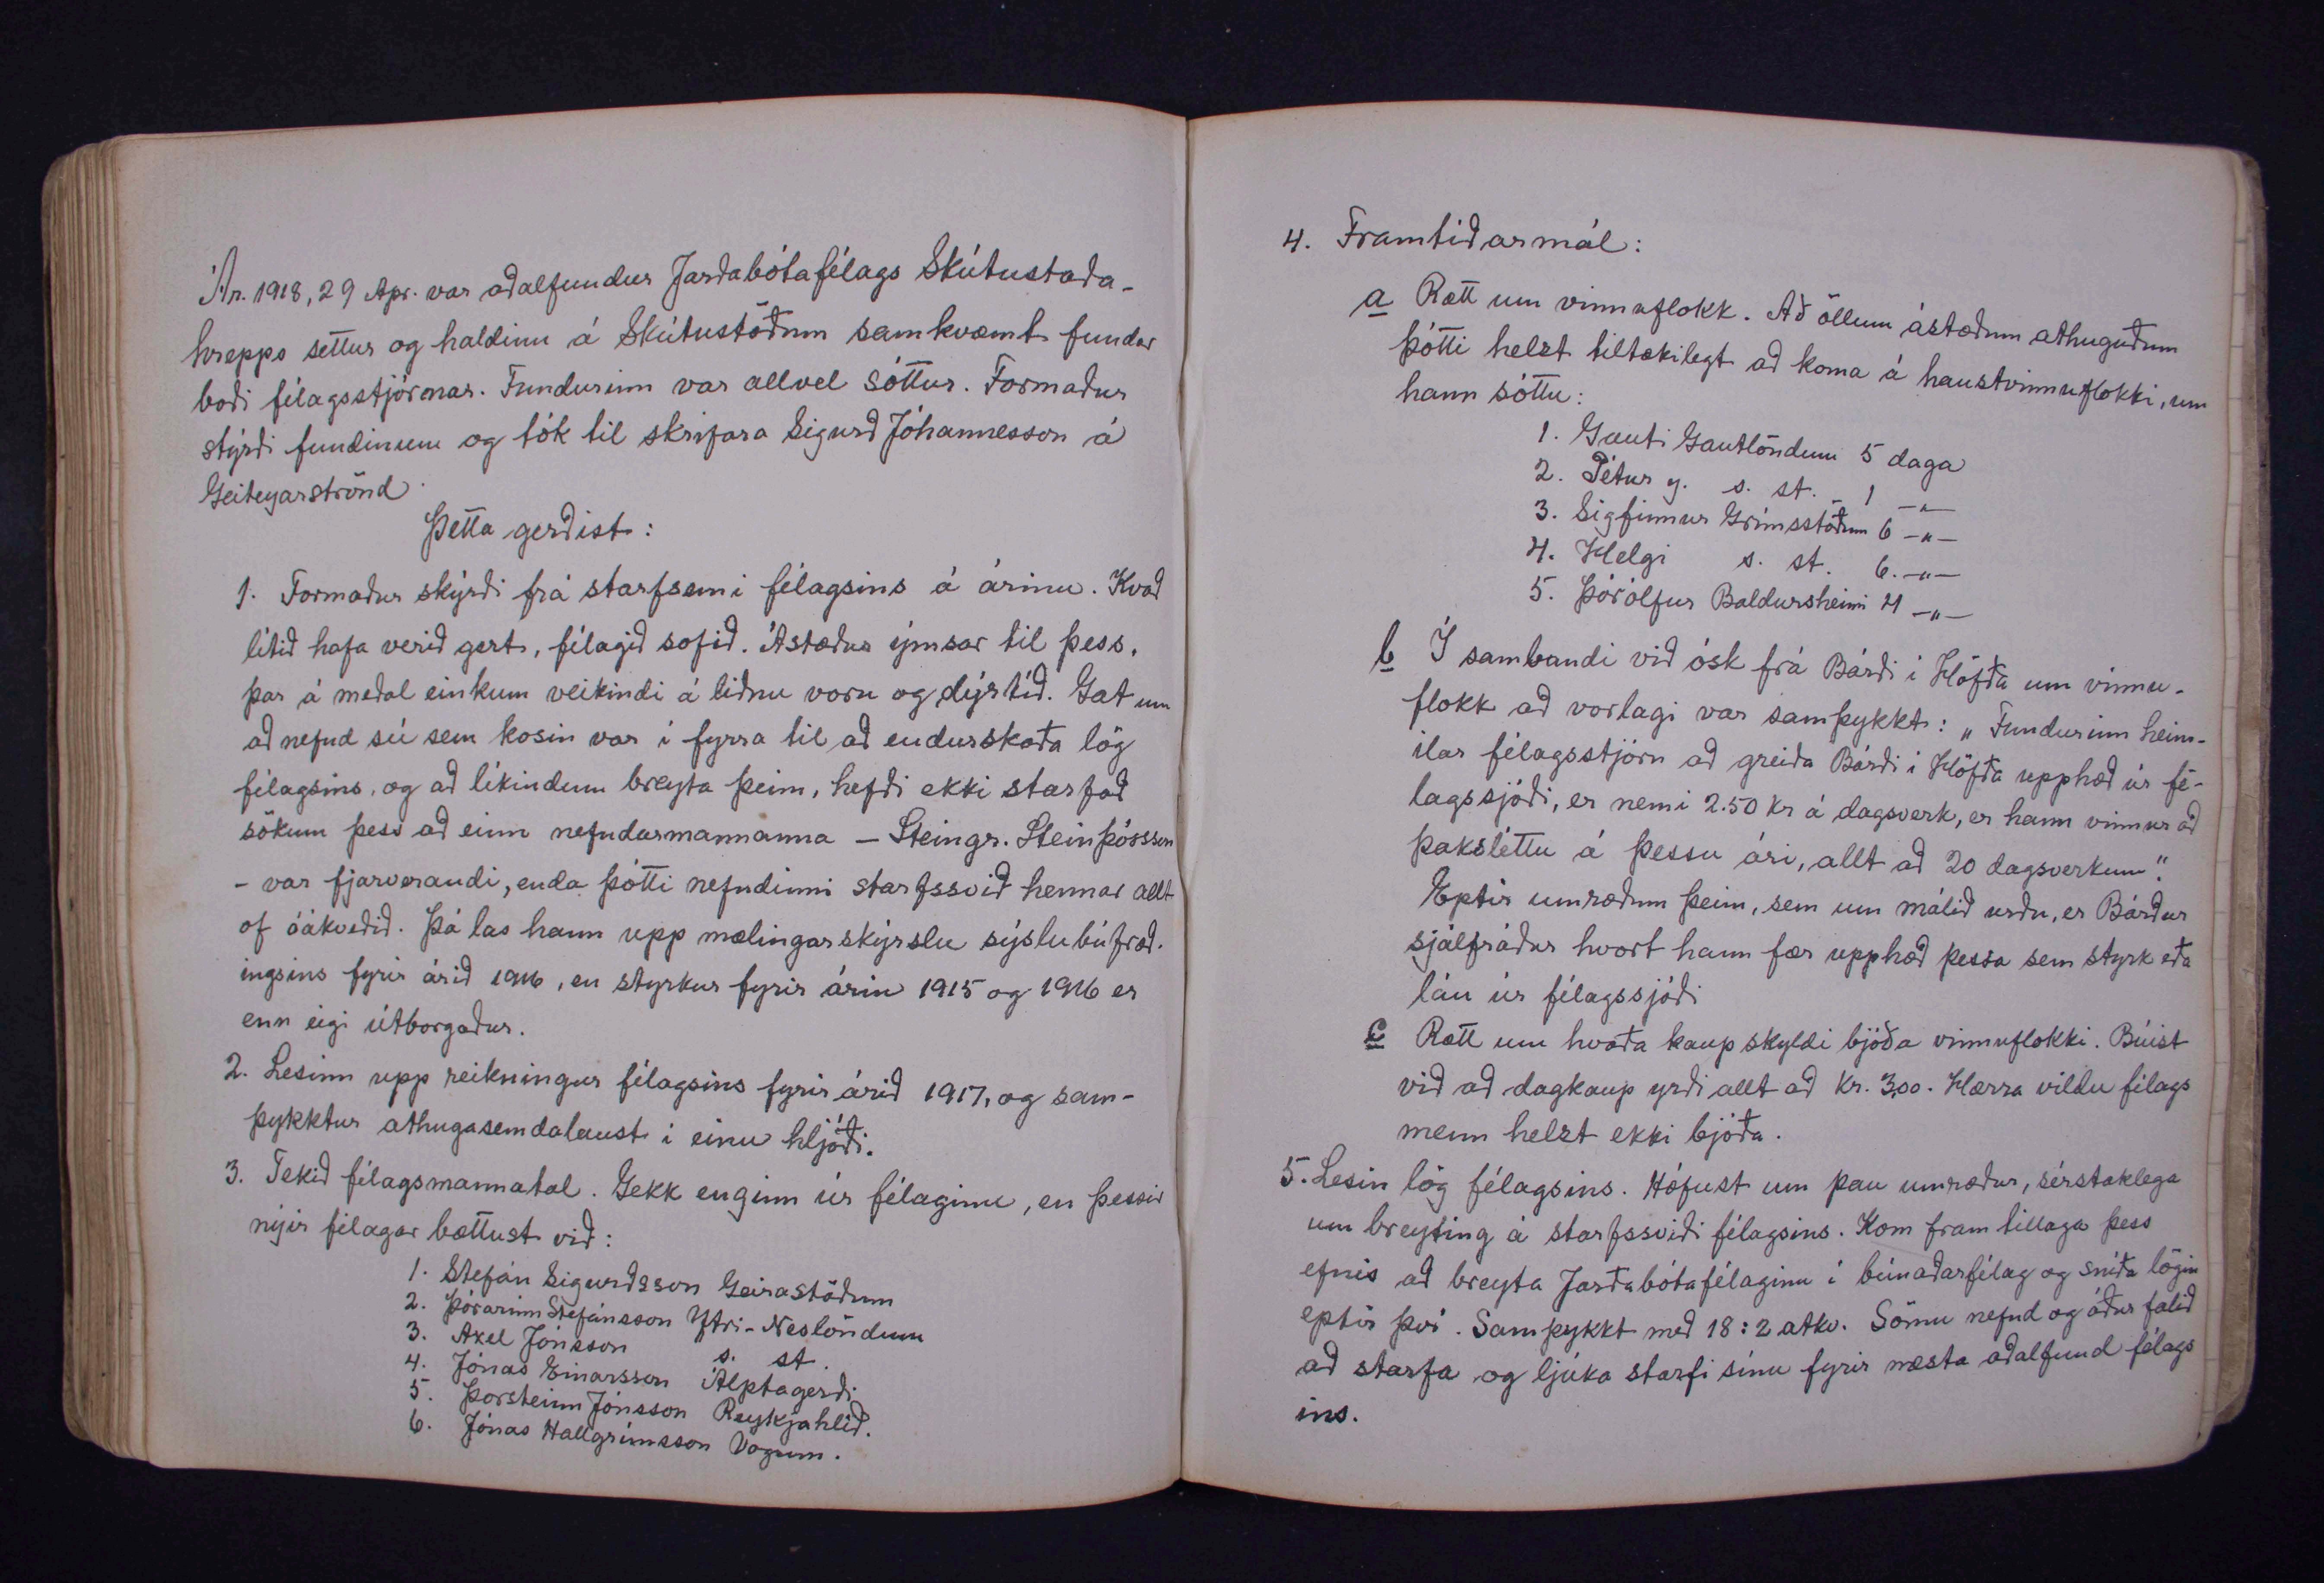 Ár. 1918, 29 Apr. var aðalfundur Jarðabótafélags Skútustaða-
hrepps settur og haldinn á Skútustöðum samkvæmt fundar
boði félagsstjórnar. Fundurinn var allvel sóttur. Formaður
stýrði fundinum og tók til skrifara Sigurð Jóhannesson á
Geiteyarströnd.
Þetta gerðist:
1. Formaður skýrði frá starfsemi félagsins á árinu. Kvað
lítið hafa verið gert, félagið sofið. Ástæður ýmsar til þess,
þar á meðal einkum veikindi á liðnu voru og dýrtíð. Gat um
að nefnd sú sem kosin var í fyrra til að endurskoða lög
félagsins, og að líkindum breyta þeim, hefði ekki starfað
sökum þess að einn nefndarmannanna – Steingr. Steinþórsson
– var fjarverandi, enda þótti nefndinni starfssvið hennar allt
of óákveðið. Þá las hann upp mælingarskýrslu sýslubúfræð-
ingsins fyrir árið 1916, en styrkur fyrir árin 1915 og 1916 er
enn eigi útborgaður.
2. Lesinn upp reikningur félagsins fyrir árið 1917, og sam-
þykktur athugasemdalaust í einu hljóði.
3. Tekið félagsmannatal. Gekk enginn úr félaginu, en þessir
nýir félagar bættust við:
1. Stefán Sigurðsson Geirastöðum
2. Þórarinn Stefánsson Ytri-Neslöndum
3. Axel Jónsson s. st.
4. Jónas Einarsson Álptagerði
5. Þorsteinn Jónsson Reykjahlíð.
6. Jónas Hallgrímsson Vogum.
4. Framtíðarmál:
a Rætt um vinnuflokk. Að öllum ástæðum athuguðum
þótti helzt tiltækilegt að koma á haustvinnuflokki, um
hann sóttu:
1. Gauti Gautlöndum 5 daga
2. Pétur y. s. st. 1 –„–
3. Sigfinnur Grímsstöðum 6 –„–
4. Helgi s. st. 6. –„–
5. Þórólfur Baldursheimi 4 –„–
b Í sambandi við ósk frá Bárði í Höfða um vinnu-
flokk að vorlagi var samþykkt: „Fundurinn heim-
ilar félagsstjórn að greiða Bárði í Höfða upphæð úr fé-
lagssjóði, er nemi 2.50 kr á dagsverk, er hann vinnur að
þaksléttu á þessu ári, allt að 20 dagsverkum".
Eptir umræðum þeim, sem um málið urðu, er Bárður
sjálfráður hvort hann fær upphæð þessa sem styrk eða
lán úr félagssjóði
c Rætt um hvaða kaup skyldi bjóða vinnuflokki. Búist
við að dagkaup yrði allt að kr. 3,00. Hærra vildu félags
menn helzt ekki bjóða.
5. Lesin lög félagsins. Hófust um þau umræður, sérstaklega
um breyting á starfssviði félagsins. Kom fram tillaga þess
efnis að breyta Jarðabótafélaginu í búnaðarfélag og sníða lögin
eptir því. Samþykkt með 18:2 atkv. Sömu nefnd og áður falið
að starfa og ljúka starfi sínu fyrir næsta aðalfund félags
ins.